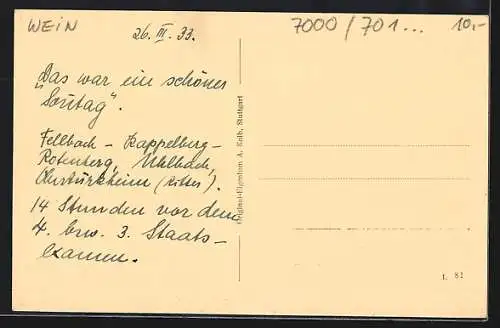 WEIN
26. III. 33.
7000/701...
10,-
Das war ein schöner
"Sonntag".
Fellbach - Kappelberg -
Rotenberg, Uhlbach,
Obertürkheim (Ritter).
14 Stunden vor dem
4. bzw. 3. Staats-
examen.
Original-Eigentum A. Kolb, Stuttgart
L 81